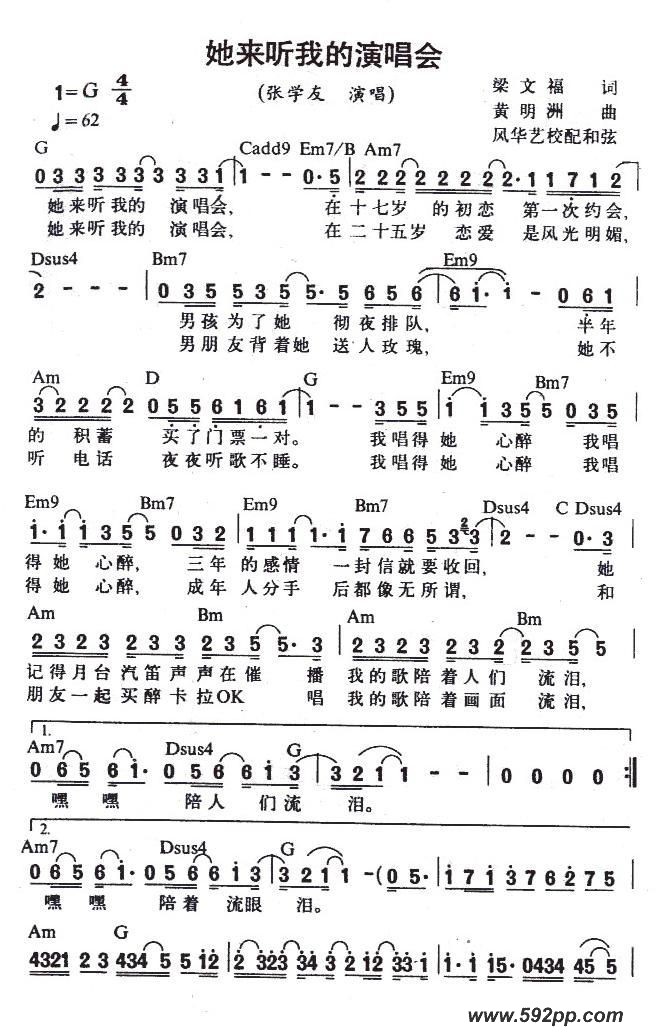 她来听我的演唱会
1=G 4/4
(张学友 演唱)
梁文福 词
♩=62
黄明洲 曲
风华艺校配和弦
G Cadd9 Em7/B Am7
0 3 3 3 3 3 3 3 3 3 1 | 1 - - 0·5 | 2 2 2 2 2 2 2 2 2·1 1 7 1 2 |
她来听我的 演唱会, 在十七岁 的初恋 第一次约会,
她来听我的 演唱会, 在二十五岁 恋爱 是风光明媚,
Dsus4 Bm7 Em9
2 - - - | 0 3 5 5 3 5 5· 5 6 5 6 | 6 1· 1 - 0 6 1 |
男孩为了她 彻夜排队, 半年
男朋友背着她 送人玫瑰, 她不
Am D G Em9 Bm7
3 2 2 2 2 0 5 5 6 1 6 1 | 1 - - 3 5 5 | 1 1 3 5 5 0 3 5 |
的 积蓄 买了门票一对。 我唱得她 心醉 我唱
听 电话 夜夜听歌不睡。 我唱得她 心醉 我唱
Em9 Bm7 Em9 Bm7 Dsus4 C Dsus4
1· 1 1 3 5 5 0 3 2 | 1 1 1 1 1·1 7 6 6 5 5 3 3 | 2 - - 0·3 |
得她 心醉, 三年 的感情 一封信就要收回, 她
得她 心醉, 成年 人分手 后都像无所谓, 和
Am Bm Am Bm
2 3 2 3 2 3 3 2 3 5 5· 3 | 2 3 2 3 2 3 2 2 3 5 5 |
记得月台汽笛声声在催 播 我的歌陪着人们 流泪,
朋友一起买醉卡拉OK 唱 我的歌陪着画面 流泪,
1.
Am7 Dsus4 G
0 6 5 6 1· 0 5 6 6 1 3 | 3 2 1 1 - - | 0 0 0 0 :|
嘿 嘿 陪人 们流 泪。
2.
Am7 Dsus4 G
0 6 5 6 1· 0 5 6 6 1 3 | 3 2 1 1 -(0 5· | 1 7 1 3 7 6 2 7 5 |
嘿 嘿 陪着 流眼 泪。
Am G
4321 2 3 434 5 5 12 | 2 323 34 3 2 12 33·1 | 1·1 15·0434 45 5 |
www.592pp.com